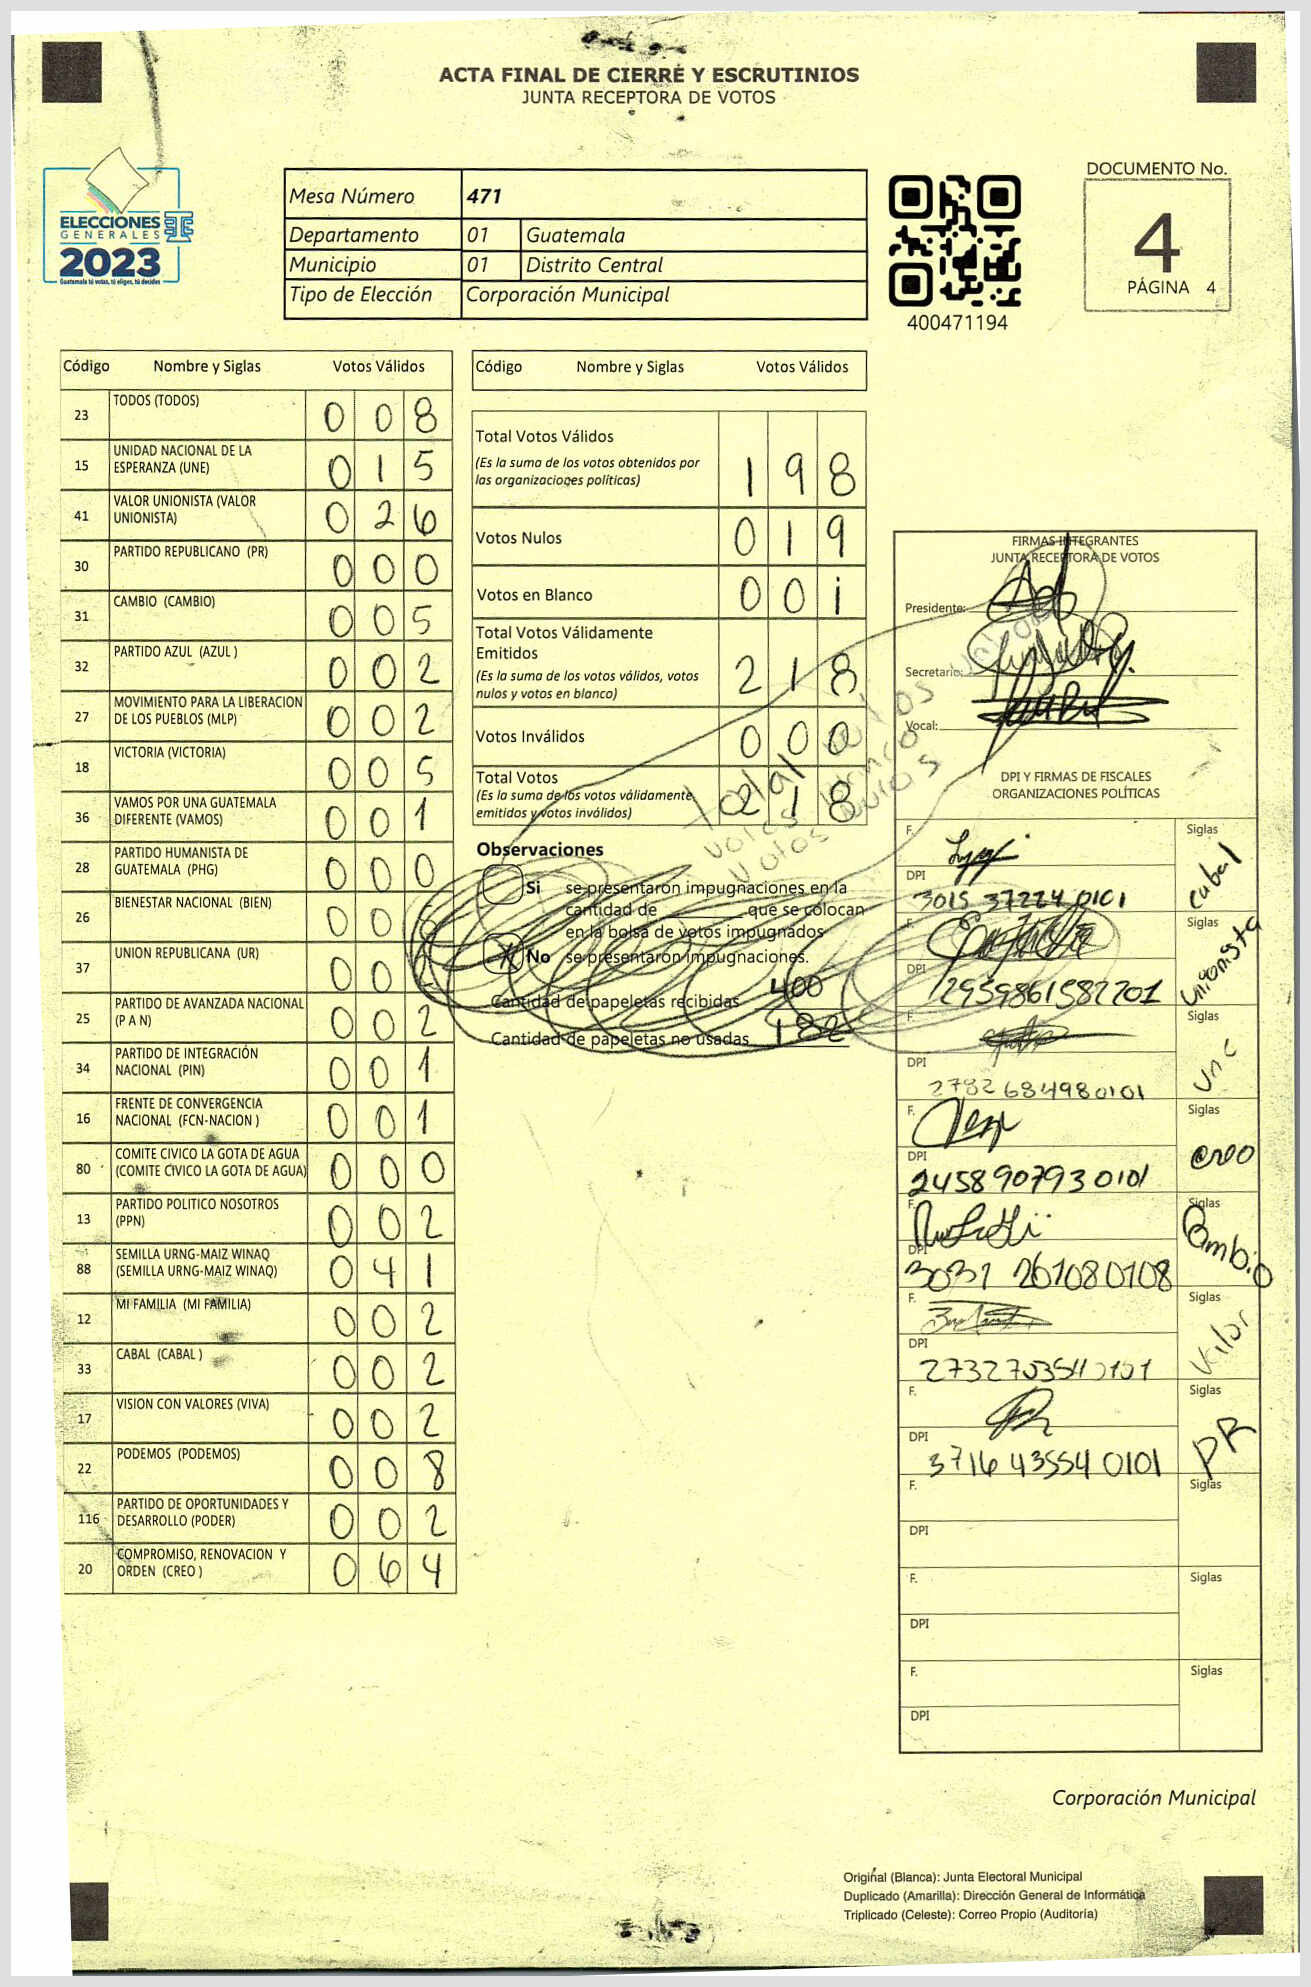 ACTA FINAL DE CIERRE Y ESCRUTINIOS
JUNTA RECEPTORA DE VOTOS
ELECCIONES
GENERALES
2023
Guatemala tú votas, tú eliges, tú decides
Mesa Número 471
Departamento 01 Guatemala
Municipio 01 Distrito Central
Tipo de Elección Corporación Municipal
400471194
DOCUMENTO No.
4
PÁGINA 4
Código Nombre y Siglas Votos Válidos
23 TODOS (TODOS) 0 0 8
15 UNIDAD NACIONAL DE LA ESPERANZA (UNE) 0 1 5
41 VALOR UNIONISTA (VALOR UNIONISTA) 0 2 6
30 PARTIDO REPUBLICANO (PR) 0 0 0
31 CAMBIO (CAMBIO) 0 0 5
32 PARTIDO AZUL (AZUL ) 0 0 2
27 MOVIMIENTO PARA LA LIBERACION DE LOS PUEBLOS (MLP) 0 0 2
18 VICTORIA (VICTORIA) 0 0 5
36 VAMOS POR UNA GUATEMALA DIFERENTE (VAMOS) 0 0 1
28 PARTIDO HUMANISTA DE GUATEMALA (PHG) 0 0 0
26 BIENESTAR NACIONAL (BIEN) 0 0
37 UNION REPUBLICANA (UR) 0 0
25 PARTIDO DE AVANZADA NACIONAL (P A N) 0 0 2
34 PARTIDO DE INTEGRACIÓN NACIONAL (PIN) 0 0 1
16 FRENTE DE CONVERGENCIA NACIONAL (FCN-NACION ) 0 0 1
80 COMITE CIVICO LA GOTA DE AGUA (COMITE CIVICO LA GOTA DE AGUA) 0 0 0
13 PARTIDO POLITICO NOSOTROS (PPN) 0 0 2
88 SEMILLA URNG-MAIZ WINAQ (SEMILLA URNG-MAIZ WINAQ) 0 4 1
12 MI FAMILIA (MI FAMILIA) 0 0 2
33 CABAL (CABAL ) 0 0 2
17 VISION CON VALORES (VIVA) 0 0 2
22 PODEMOS (PODEMOS) 0 0 8
116 PARTIDO DE OPORTUNIDADES Y DESARROLLO (PODER) 0 0 2
20 COMPROMISO, RENOVACION Y ORDEN (CREO ) 0 6 4
Código Nombre y Siglas Votos Válidos
Total Votos Válidos 1 9 8
(Es la suma de los votos obtenidos por
las organizaciones políticas)
Votos Nulos 0 1 9
Votos en Blanco 0 0 1
Total Votos Válidamente
Emitidos 2 1 8
(Es la suma de los votos válidos, votos
nulos y votos en blanco)
Votos Inválidos 0 0 0
Total Votos 2 1 8
(Es la suma de los votos válidamente
emitidos y votos inválidos)
Observaciones
Si se presentaron impugnaciones en la
cantidad de ________ que se colocan
en la bolsa de votos impugnados
X No se presentaron impugnaciones.
Cantidad de papeletas recibidas 400
Cantidad de papeletas no usadas 182
FIRMAS INTEGRANTES
JUNTA RECEPTORA DE VOTOS
Presidente:
Secretario:
Vocal:
DPI Y FIRMAS DE FISCALES
ORGANIZACIONES POLÍTICAS
F. Siglas cabal
DPI 3015 37224 0101
F. Siglas unionista
DPI 2959861582201
F. Siglas une
DPI 2782684980101
F. Siglas creo
DPI 2458907930101
F. Siglas Cambio
DPI 3031 261080108
F. Siglas Valor
DPI 2732703540101
F. Siglas PR
DPI 3716 43554 0101
F. Siglas
DPI
F. Siglas
DPI
F. Siglas
DPI
Corporación Municipal
Original (Blanca): Junta Electoral Municipal
Duplicado (Amarilla): Dirección General de Informática
Triplicado (Celeste): Correo Propio (Auditoría)